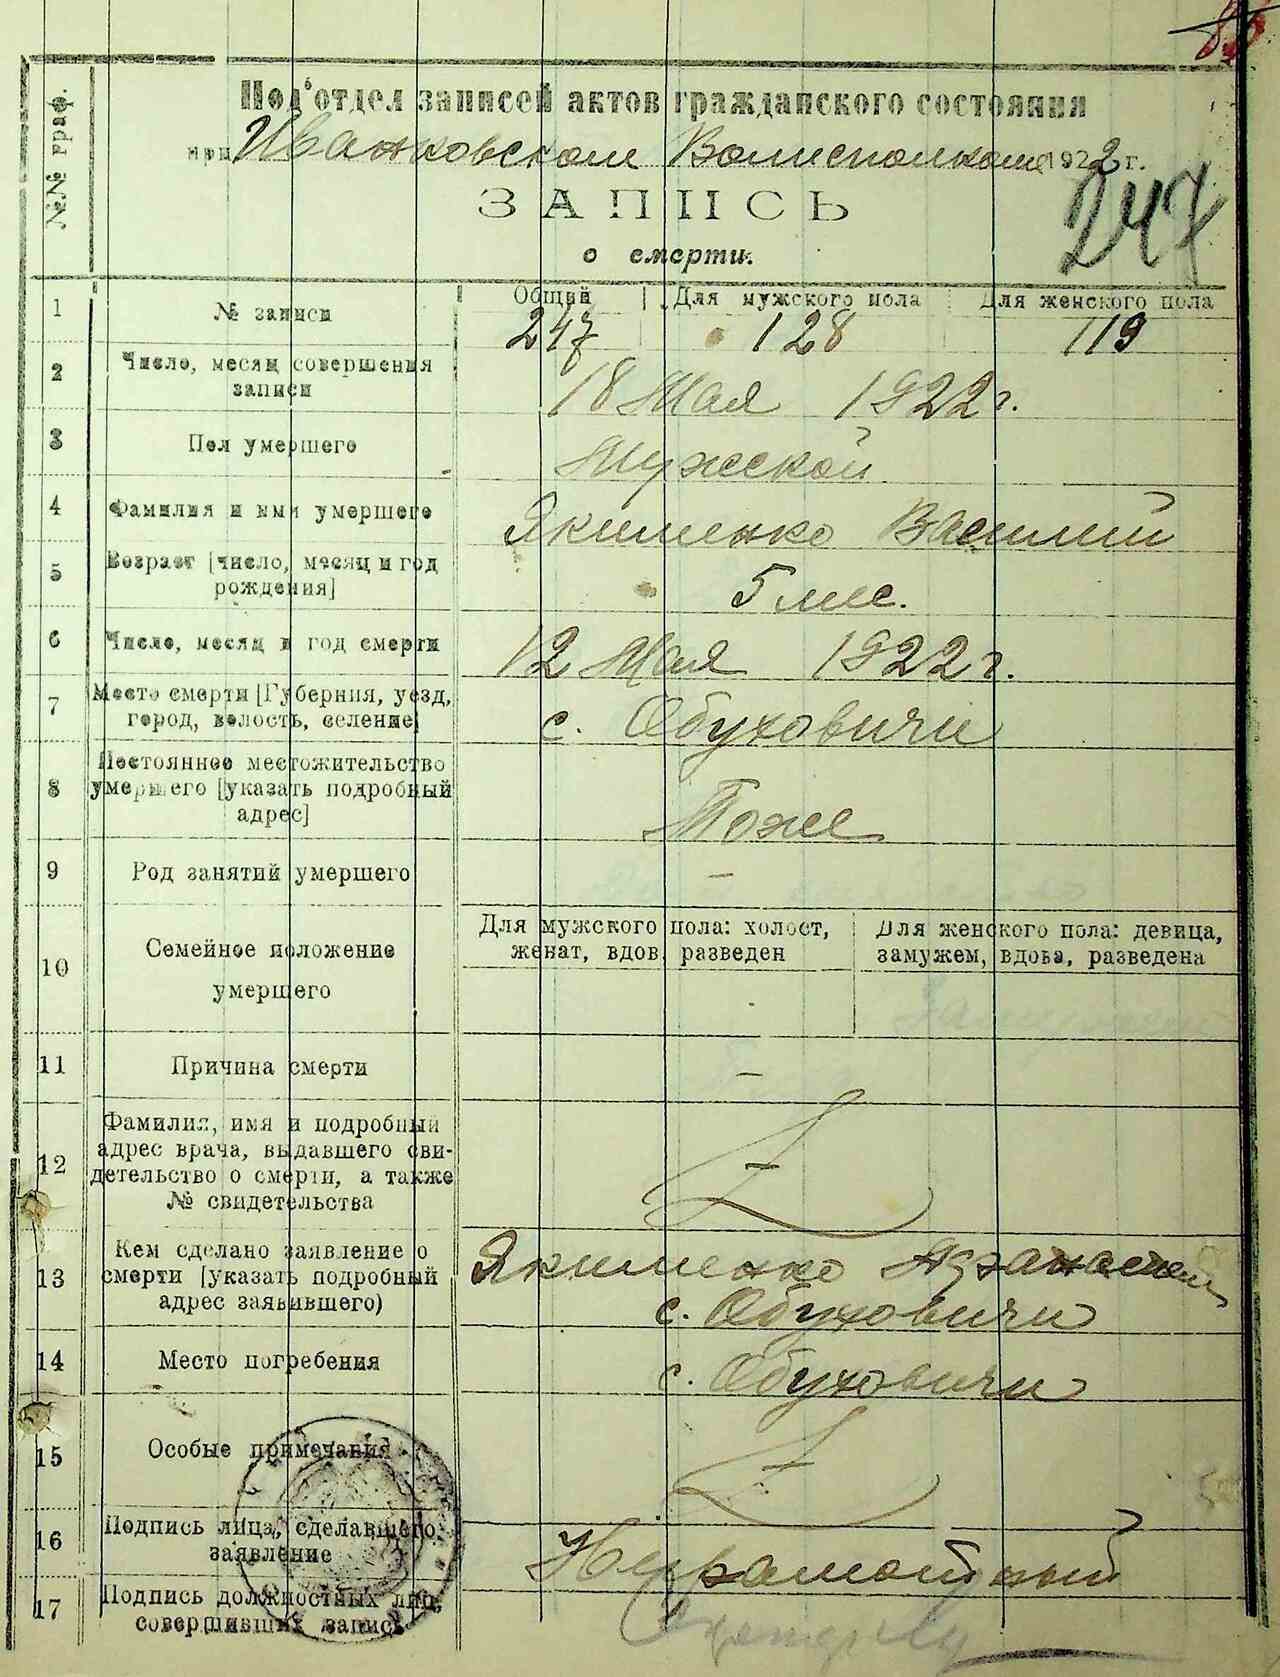 №№ граф.
Под'отдел записей актов гражданского состояния
при Иванковском Волисполкоме 1922 г.
247
ЗАПИСЬ
о смерти.
1 № записи Общий Для мужского пола Для женского пола
247 128 119
2 Число, месяц совершения
записи
18 Мая 1922 г.
3 Пол умершего Мужской
4 Фамилия и имя умершего Якименко Василий
5 Возраст [число, месяц и год
рождения]
5 мес.
6 Число, месяц и год смерти 12 Мая 1922 г.
7 Место смерти [Губерния, уезд,
город, волость, селение]
с. Обуховичи
8 Постоянное местожительство
умершего [указать подробный
адрес]
Тоже
9 Род занятий умершего –
10 Семейное положение
умершего
Для мужского пола: холост,
женат, вдов, разведен
Для женского пола: девица,
замужем, вдова, разведена
–
11 Причина смерти –
12 Фамилия, имя и подробный
адрес врача, выдавшего сви-
детельство о смерти, а также
№ свидетельства
13 Кем сделано заявление о
смерти [указать подробный
адрес заявившего)
Якименко
с. Обуховичи
14 Место погребения с. Обуховичи
15 Особые примечания
16 Подпись лица, сделавшего
заявление
Неграмотный
17 Подпись должностных лиц,
совершивших запись